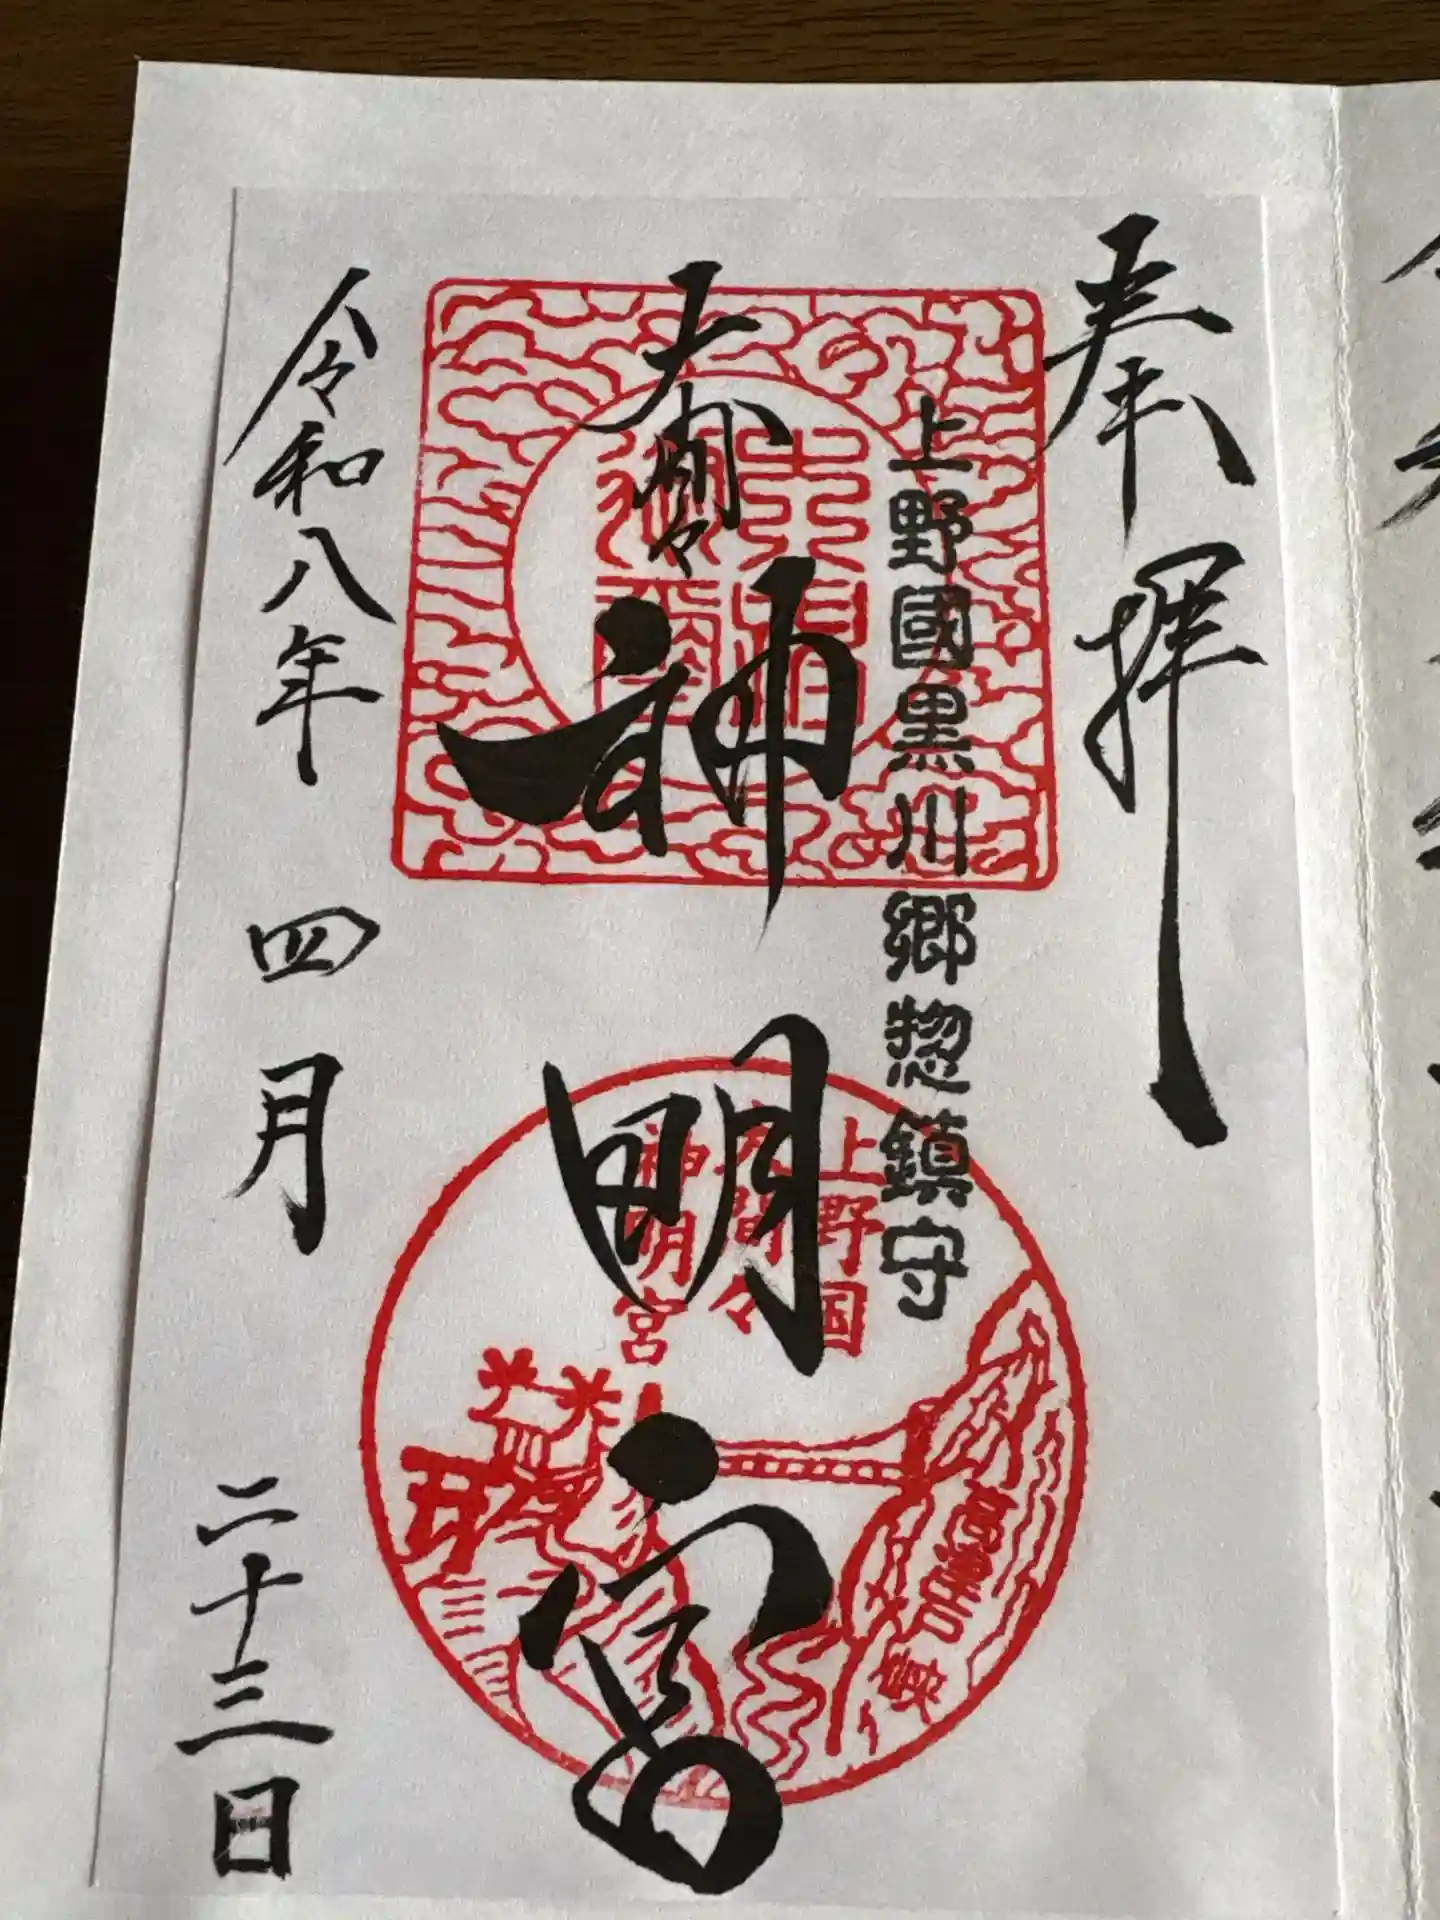 奉拝
上野國黒川郷惣鎮守
大間々
神明宮
上野国
大間々
神明宮
高津戸峡
令和八年四月二十三日